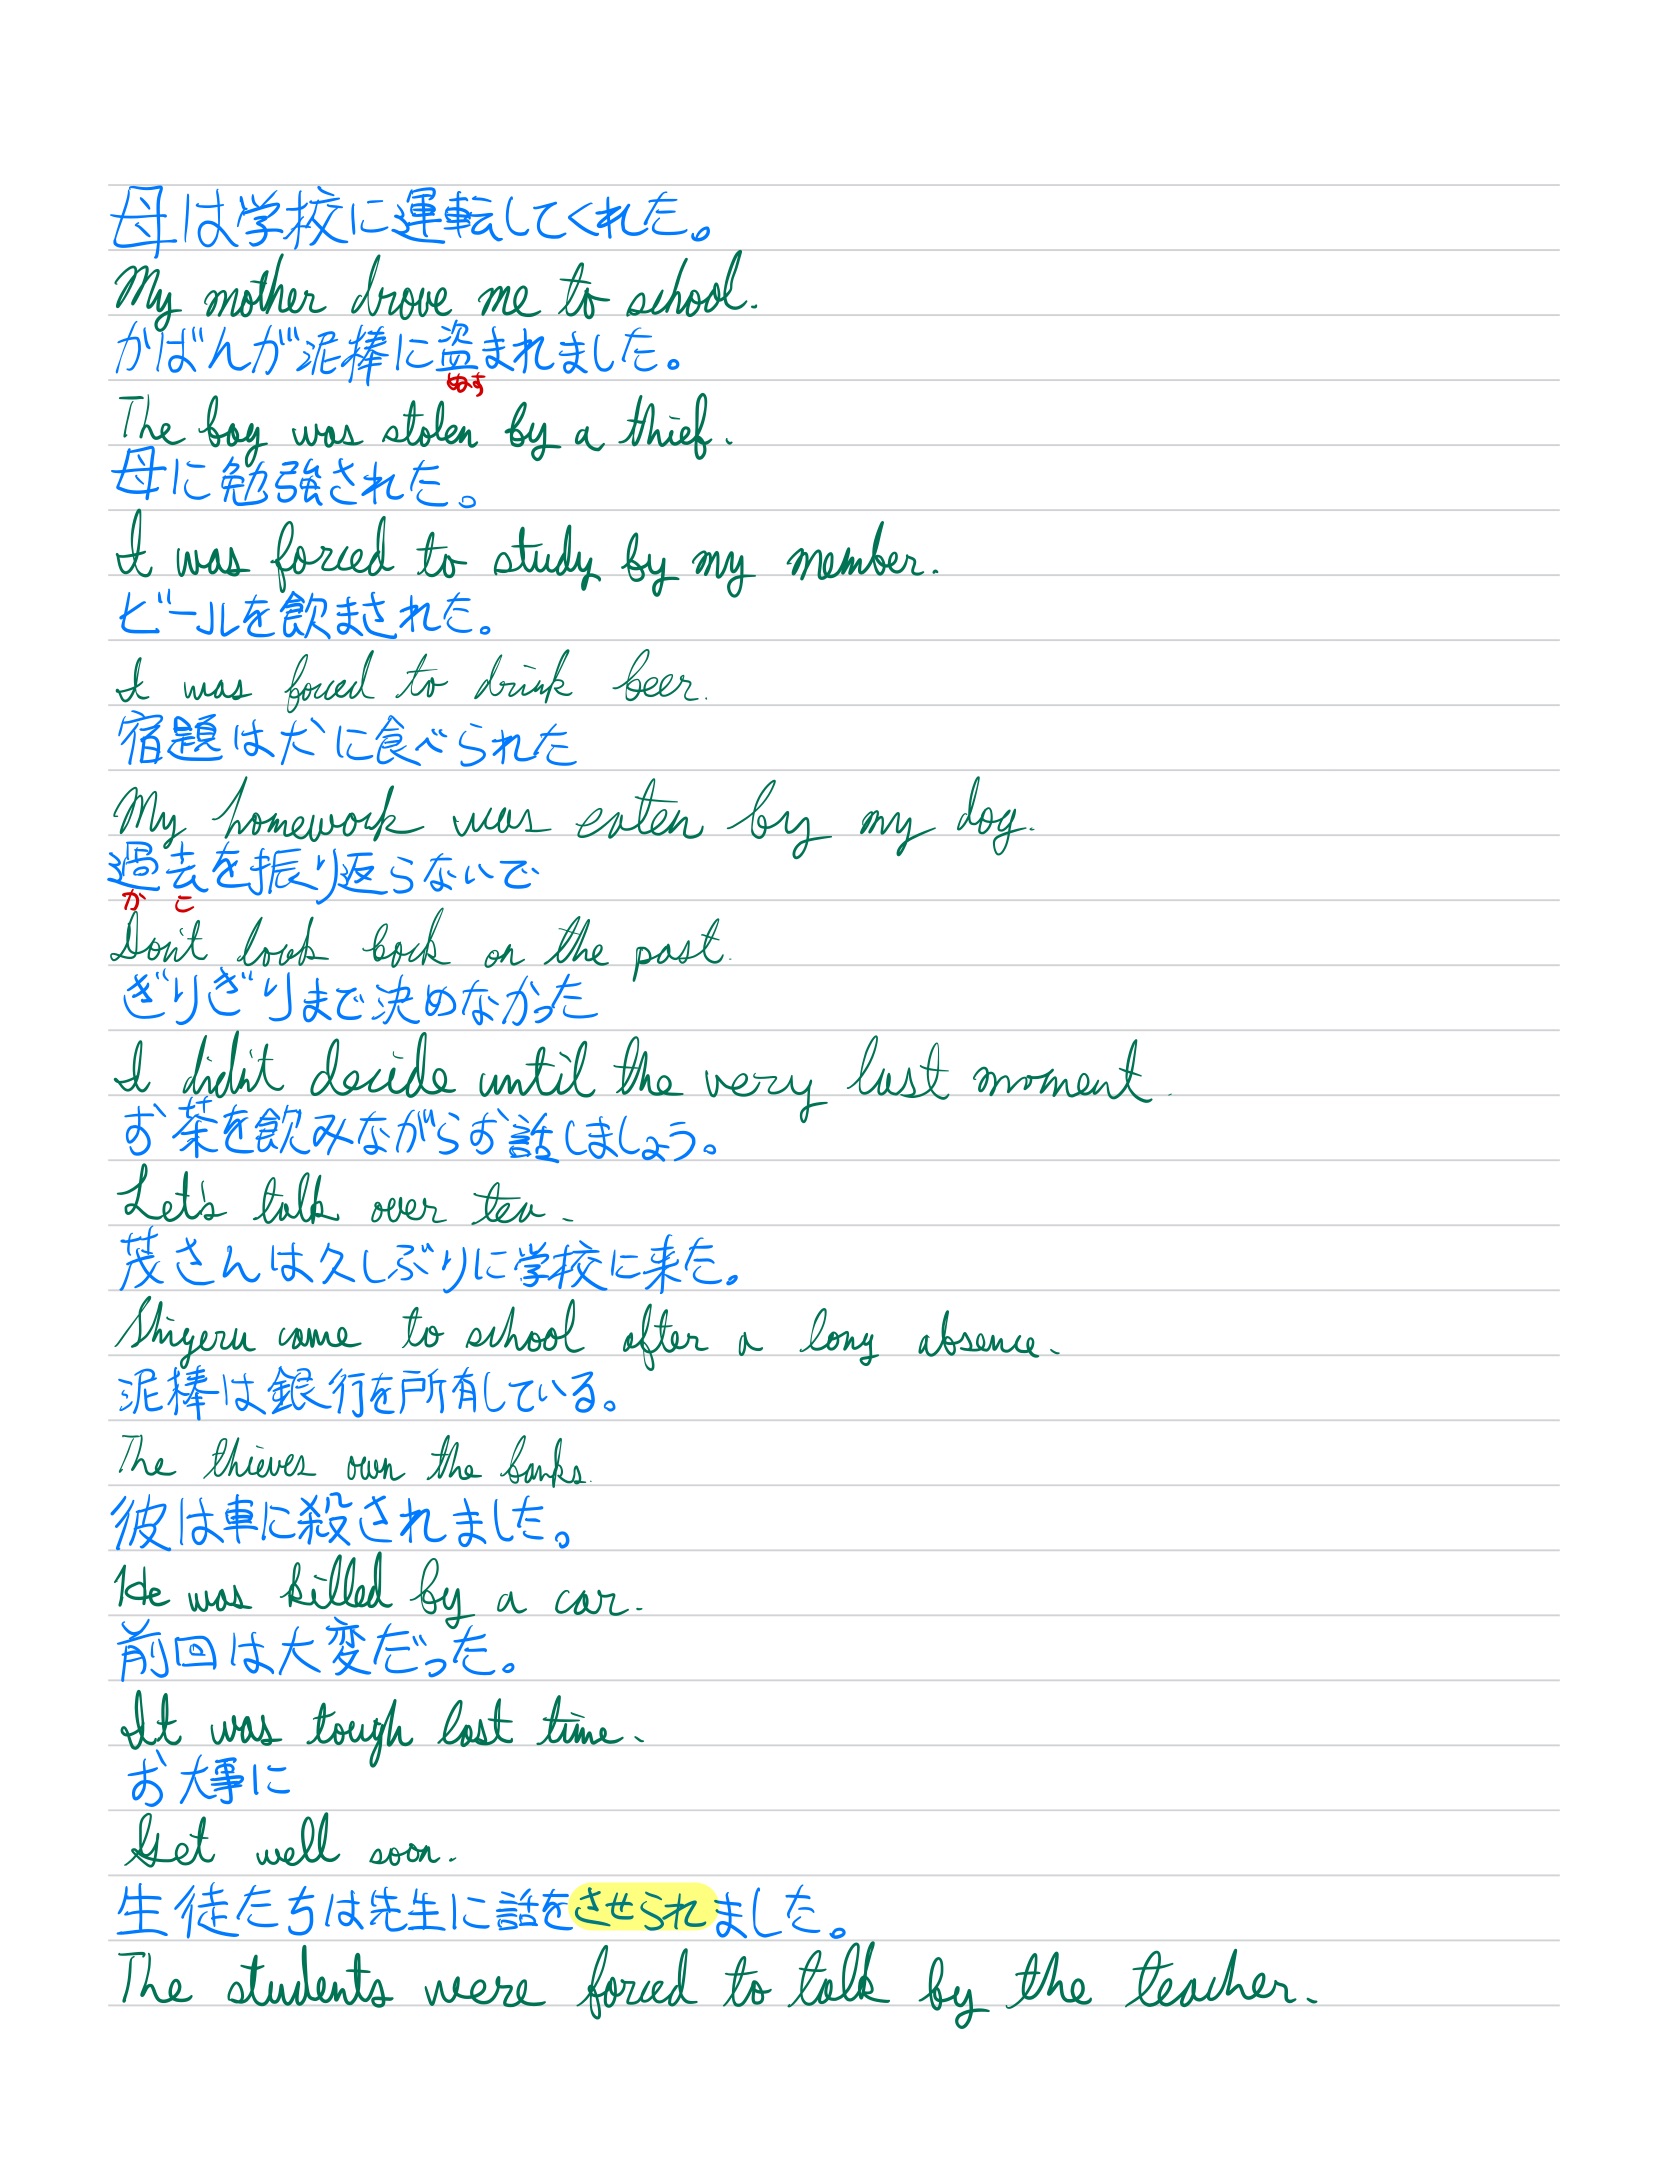 母は学校に運転してくれた。
My mother drove me to school.
かばんが泥棒に盗まれました。
ぬす
The bag was stolen by a thief.
母に勉強された。
I was forced to study by my member.
ビールを飲まされた。
I was forced to drink beer.
宿題は犬に食べられた
My homework was eaten by my dog.
過去を振り返らないで
か こ
Don't look back on the past.
ぎりぎりまで決めなかった
I didn't decide until the very last moment.
お茶を飲みながらお話しましょう。
Let's talk over tea.
茂さんは久しぶりに学校に来た。
Shigeru came to school after a long absence.
泥棒は銀行を所有している。
The thieves own the banks.
彼は車に殺されました。
He was killed by a car.
前回は大変だった。
It was tough last time.
お大事に
Get well soon.
生徒たちは先生に話をさせられました。
The students were forced to talk by the teacher.